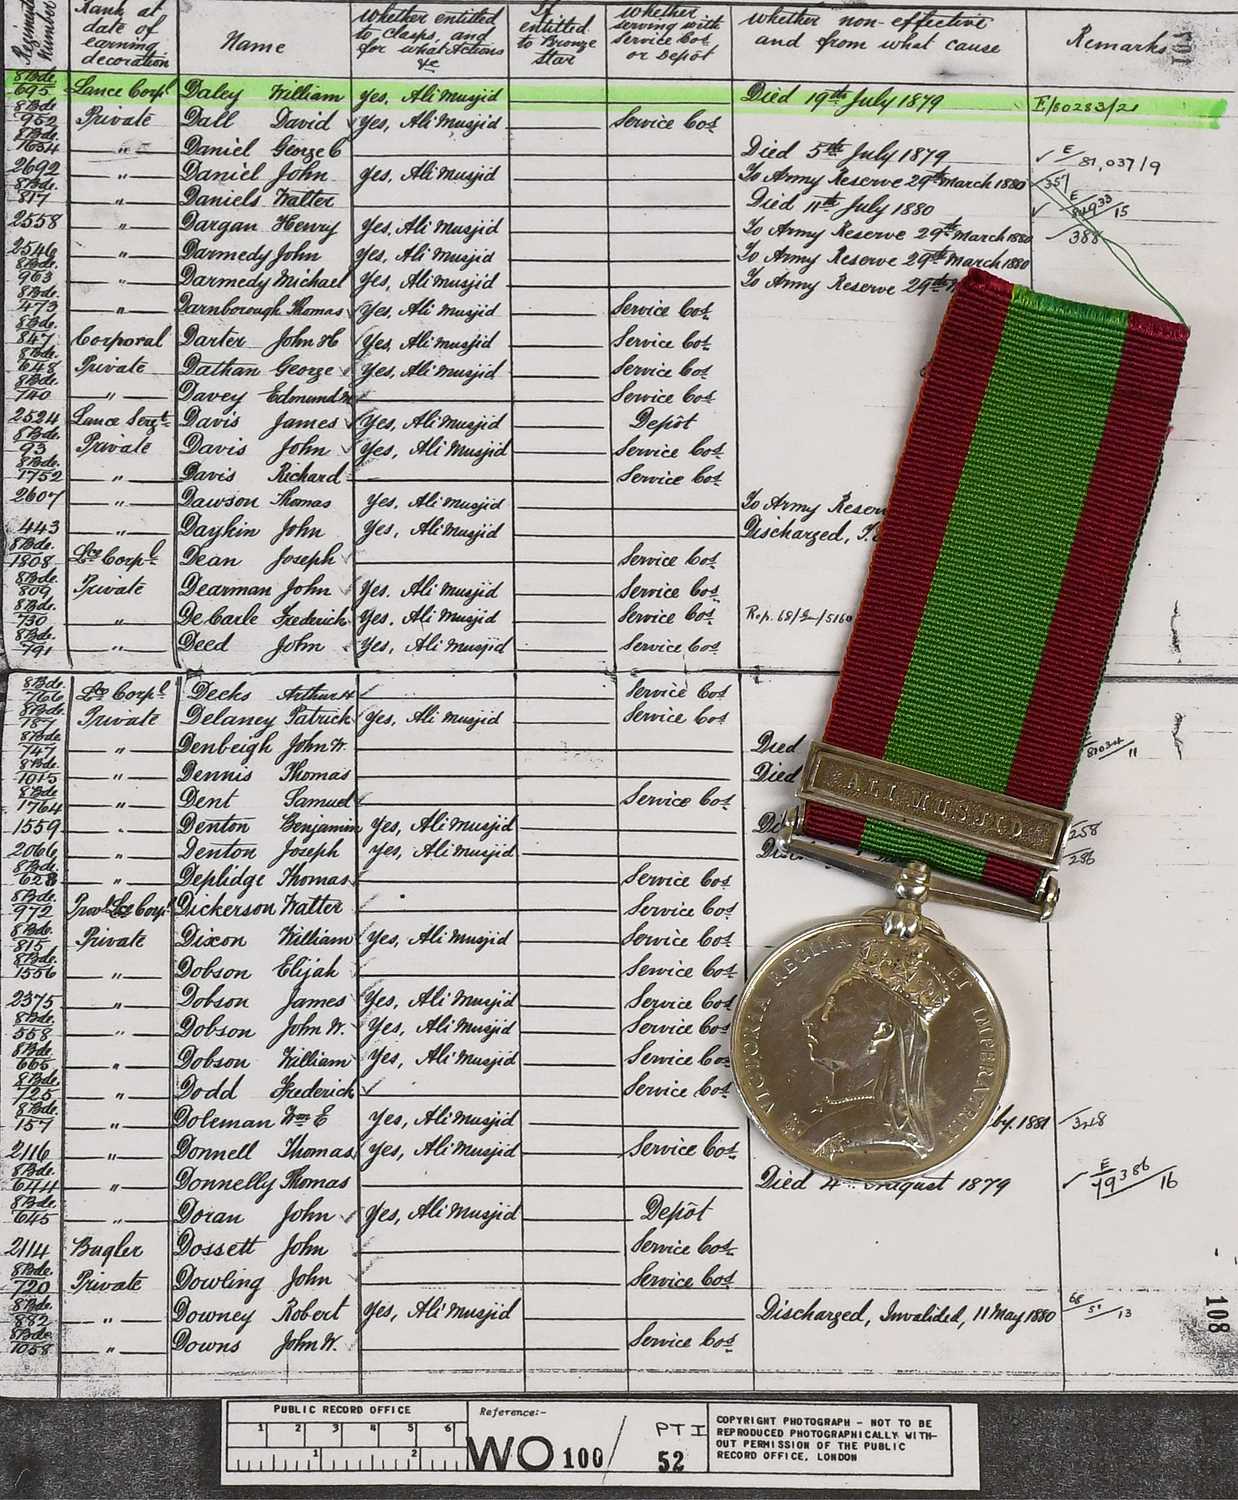 Number
Rank at
date of
earning
decoration
Name
whether entitled
to clasps, and
for what Actions
&c
If
entitled
to Bronze
Star
whether
serving with
Service Cos
or Depôt
whether non-effective
and from what cause
Remarks
8 Bde. 695 Lance Corpl Daley William Yes, Ali Musjid Died 19th July 1879 E/80283/21
8 Bde. 952 Private Dall David Yes, Ali Musjid Service Cos
8 Bde. 1634 " Daniel George C Died 5th July 1879 E/81,037/9
2692 " Daniel John Yes, Ali Musjid To Army Reserve 29th March 1880 357
8 Bde. 817 " Daniels Walter Died 11th July 1880 E/84933/15
2558 " Dargan Henry Yes, Ali Musjid To Army Reserve 29th March 1880 388
2546 " Darmedy John Yes, Ali Musjid To Army Reserve 29th March 1880
8 Bde. 963 " Darmedy Michael Yes, Ali Musjid To Army Reserve 29th
8 Bde. 473 " Darnborough Thomas Yes, Ali Musjid Service Cos
8 Bde. 847 Corporal Darter John H Yes, Ali Musjid Service Cos
8 Bde. 648 Private Dathan George Yes, Ali Musjid Service Cos
8 Bde. 740 " Davey Edmund W Service Cos
2524 Lance Sergt Davis James Yes, Ali Musjid Depôt
8 Bde. 93 Private Davis John Yes, Ali Musjid Service Cos
8 Bde. 1752 " Davis Richard Service Cos
2607 " Dawson Thomas Yes, Ali Musjid To Army Reser
443 " Daykin John Yes, Ali Musjid Discharged,
8 Bde. 1808 Lce Corpl Dean Joseph Service Cos
8 Bde. 809 Private Dearman John Yes, Ali Musjid Service Cos
8 Bde. 730 " De Carle Frederick Yes, Ali Musjid Service Cos Rep. 68/ /5160
8 Bde. 791 " Deed John Yes, Ali Musjid Service Cos
8 Bde. 766 Lce Corpl Deeks Arthur H Service Cos
8 Bde. 787 Private Delaney Patrick Yes, Ali Musjid Service Cos
8 Bde. 747 " Denbeigh John W. Died 11
8 Bde. 1015 " Dennis Thomas Died
8 Bde. 1764 " Dent Samuel Service Cos
1559 " Denton Benjamin Yes, Ali Musjid 258
2066 " Denton Joseph Yes, Ali Musjid 286
8 Bde. 628 " Deplidge Thomas Service Cos
8 Bde. 972 Provl Lce Corpl Dickerson Walter Service Cos
8 Bde. 815 Private Dixon William Yes, Ali Musjid Service Cos
8 Bde. 1556 " Dobson Elijah Service Cos
2375 " Dobson James Yes, Ali Musjid Service Cos
8 Bde. 558 " Dobson John W. Yes, Ali Musjid Service Cos
8 Bde. 665 " Dobson William Yes, Ali Musjid Service Cos
8 Bde. 725 " Dodd Frederick Service Cos
8 Bde. 157 " Doleman Wm E Yes, Ali Musjid by. 1881 348
2116 " Donnell Thomas Yes, Ali Musjid Service Cos
8 Bde. 644 " Donnelly Thomas Died 4th August 1879 E/79386/16
8 Bde. 645 " Doran John Yes, Ali Musjid Depôt
2114 Bugler Dossett John Service Cos
8 Bde. 720 Private Dowling John Service Cos
8 Bde. 882 " Downey Robert Yes, Ali Musjid Discharged, Invalided, 11 May 1880 68/51/13
8 Bde. 1058 " Downs John W. Service Cos
108
ALI MUSJID
VICTORIA REGINA ET IMPERATRIX
PUBLIC RECORD OFFICE
1 2 3 4 5 6
1 2
Reference:-
WO 100/ PT I
52
COPYRIGHT PHOTOGRAPH - NOT TO BE
REPRODUCED PHOTOGRAPHICALLY WITH-
OUT PERMISSION OF THE PUBLIC
RECORD OFFICE, LONDON